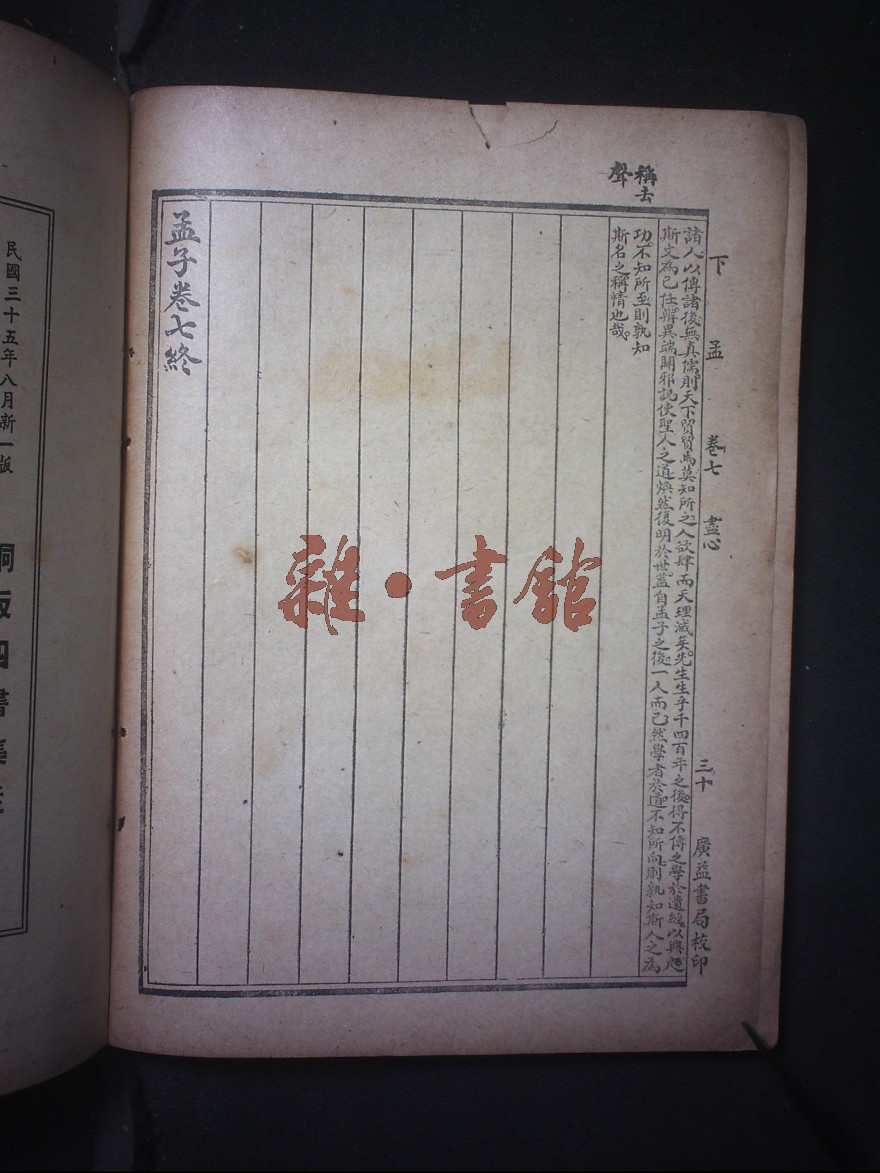 稱去
聲
下孟 卷七 盡心 三十 廣益書局校印
諸人以傳諸後無真儒則天下貿貿焉莫知所之人欲肆而天理滅矣先生生乎千四百年之後得不傳之學於遺經以興起
斯文為己任辨異端闢邪說使聖人之道煥然復明於世蓋自孟子之後一人而已然學者於道不知所向則孰知斯人之為
功不知所至則孰知
斯名之稱情也哉
孟子卷七終
雜·書館
民國三十五年八月新一版
銅版四書集註